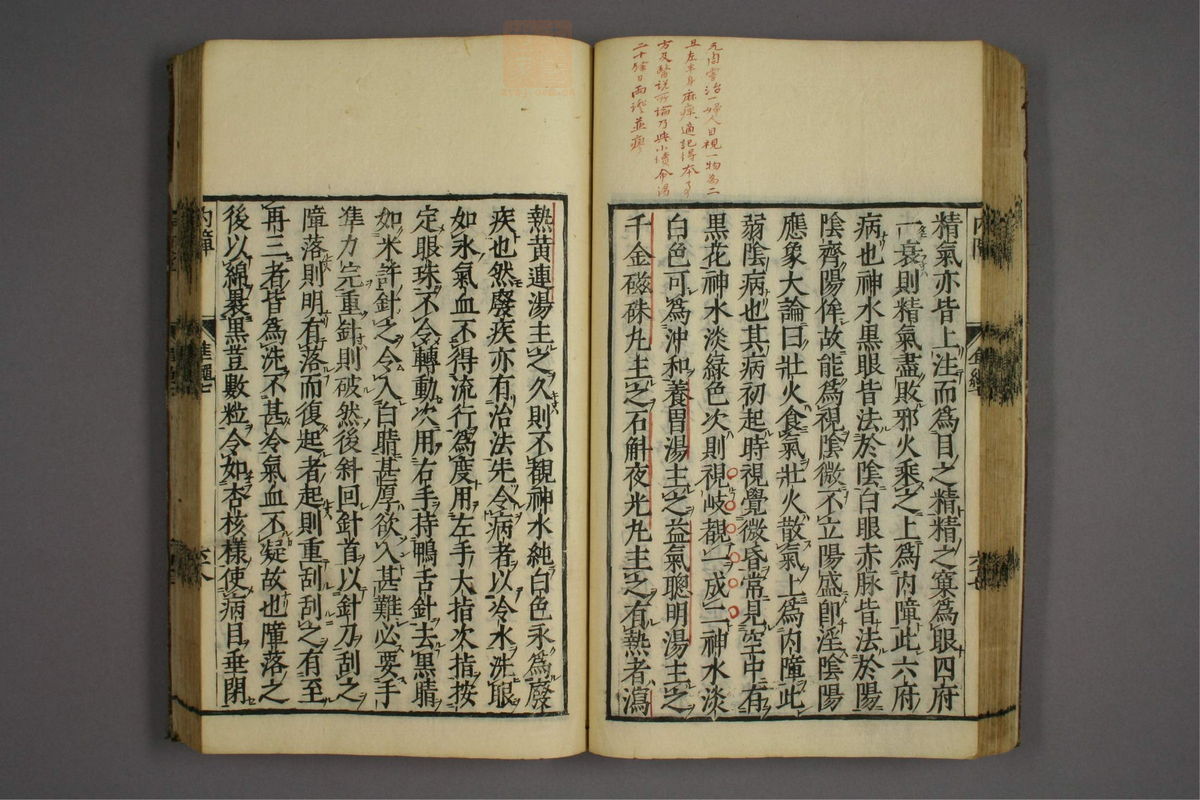 元随嘗治一婦人目視一物為二
且左半身麻痺適記得本事
方及醫説所論乃與小續命湯
二十餘日兩證並瘳
内障
精氣亦皆上注而為目之精精之窠為眼四府
一衰則精氣盡敗邪火乘之上為内障此六府
病也神水黒眼皆法於陰白眼赤脉皆法於陽
陰齊陽侔故能為視陰微不立陽盛即淫陰陽
應象大論曰壮火食氣壮火散氣上為内障此
弱陰病也其病初起時視覺微昏常見空中有
黒花神水淡緑色次則視岐覩一成二神水淡
白色可為沖和養胃湯主之益氣聰明湯主之
千金磁硃丸主之石斛夜光丸主之有熱者瀉
熱黄連湯主之久則不覩神水純白色永為廢
疾也然廢疾亦有治法先令病者以冷水洗眼
如氷氣血不得流行為度用左手大指次指按
定眼珠不令轉動次用右手持鴨舌針去黒睛
如米許針之令入白睛甚厚欲入甚難必要手
準力完重針則破然後斜回針首以針刀刮之
障落則明有落而復起者起則重刮刮之有至
再三者皆為洗不甚令氣血不凝故也障落之
後以綿裹黒豆數粒令如杏核様使病目垂閉
内障
六八